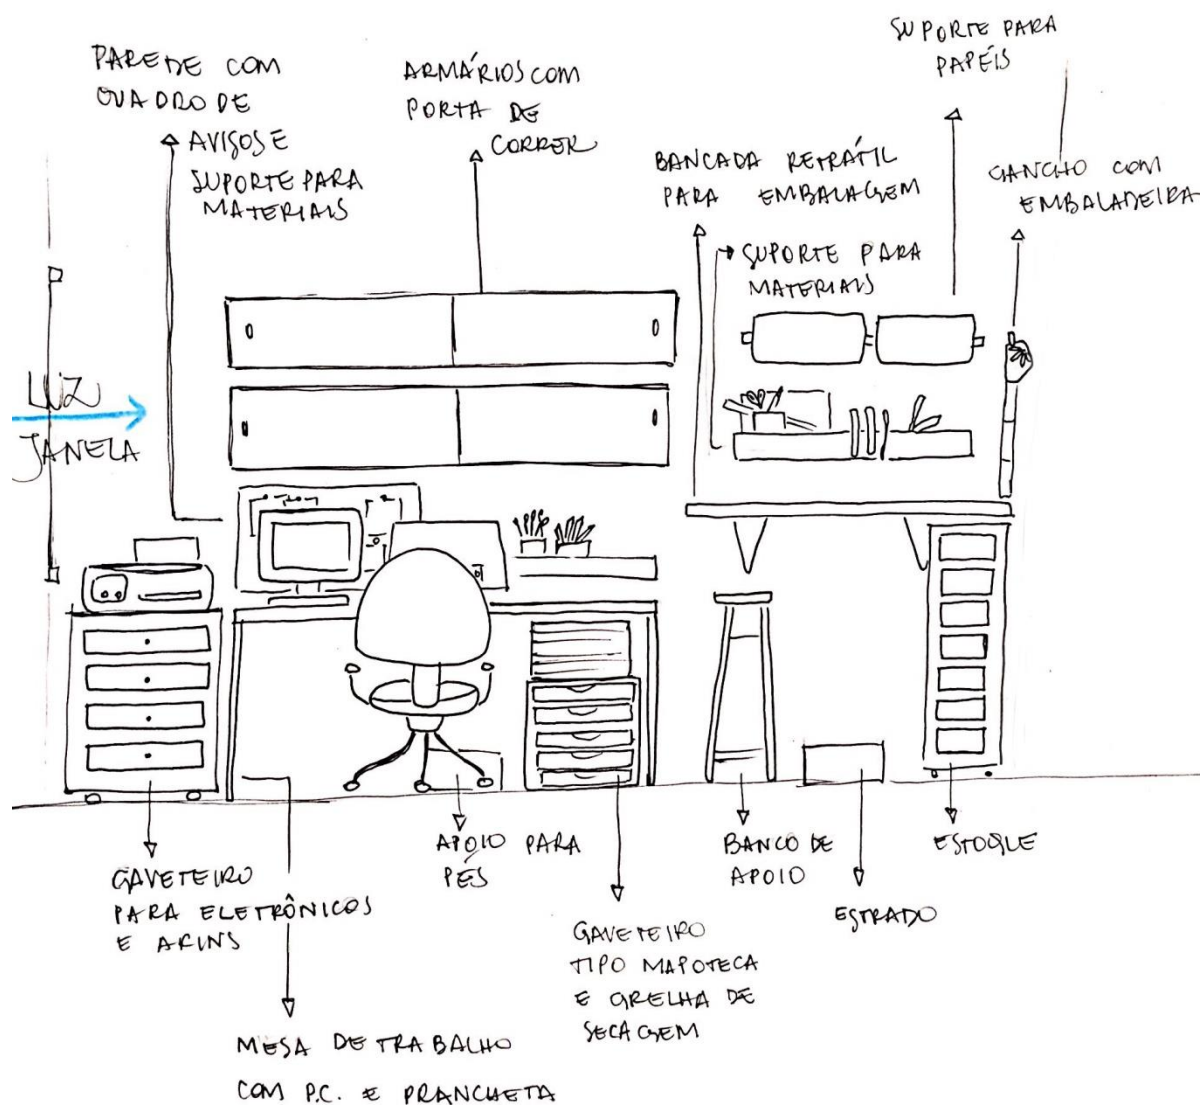 PAREDE COM
QUADRO DE
AVISOS E
SUPORTE PARA
MATERIAIS
ARMÁRIOS COM
PORTA DE
CORRER
SUPORTE PARA
PAPÉIS
BANCADA RETRÁTIL
PARA EMBALAGEM
GANCHO COM
EMBALADEIRA
SUPORTE PARA
MATERIAIS
LUZ
JANELA
GAVETEIRO
PARA ELETRÔNICOS
E AFINS
MESA DE TRABALHO
COM P.C. E PRANCHETA
APOIO PARA
PÉS
GAVETEIRO
TIPO MAPOTECA
E GRELHA DE
SECAGEM
BANCO DE
APOIO
ESTRADO
ESTOQUE